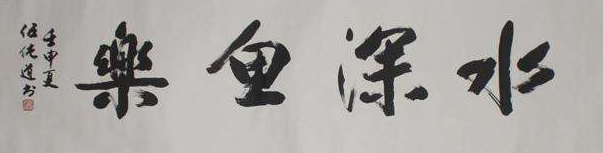 水深魚樂
壬申夏
伍純道书